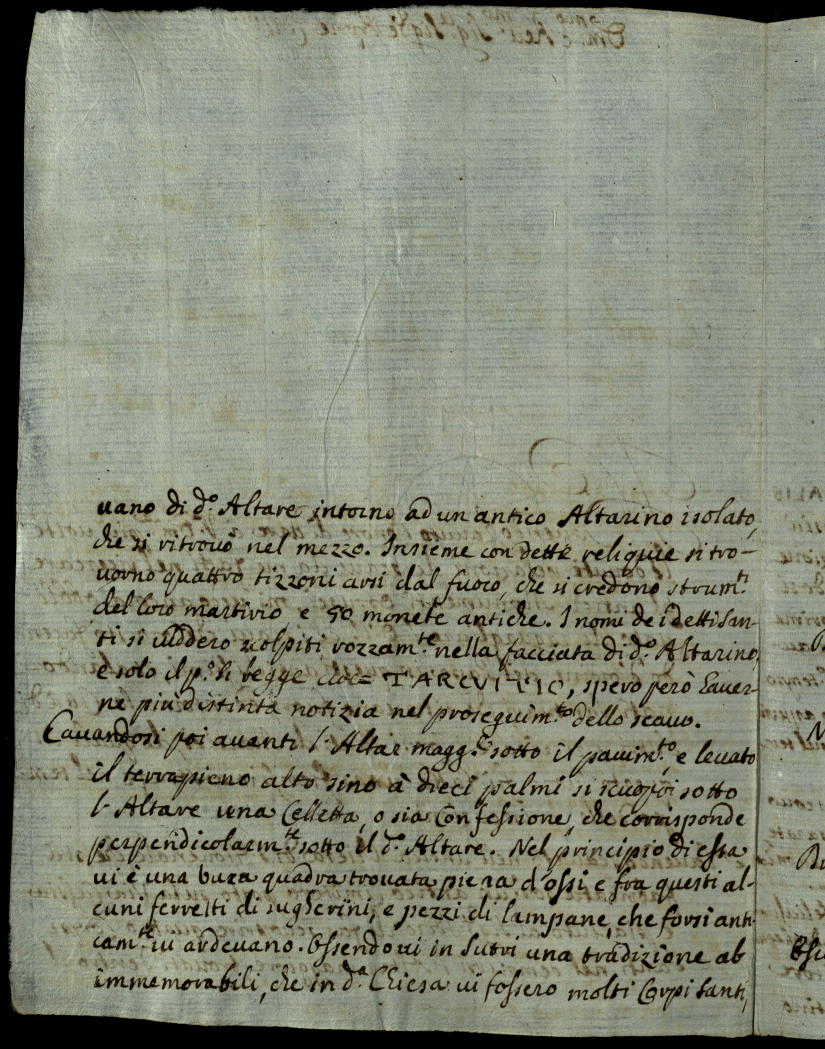 uano di d.º Altare intorno ad un antico Altarino isolato,
che si ritrovò nel mezzo. Insieme con dette reliquie si tro-
uorno quattro tizzoni arsi dal fuoco, che si credono strum.ti
del loro martirio, e 50 monete antiche. I nomi de i detti San-
ti si uiddero scolpiti rozzam.te nella facciata di d.º Altarino,
e solo il p.º si legge cioè TARCVITIO, spero però hauer-
ne più distinta notizia nel proseguim.to dello scauo.
Cauandosi poi auanti l'Altar magg.e sotto il pauim.to, e leuato
il terrapieno alto sino à dieci palmi si scuoprì sotto
l'Altare una Celletta, o sia Confessione, che corrisponde
perpendicolarm.te sotto il d.º Altare. Nel principio di essa
ui è una buca quadra trouata piena d'ossi e fra questi al-
cuni ferretti di sugherini, e pezzi di lampane, che forsi anti
cam.te ui ardeuano. Essendoui in Sutri una tradizione ab
immemorabili, che in d.a Chiesa ui fossero molti Corpi Santi,